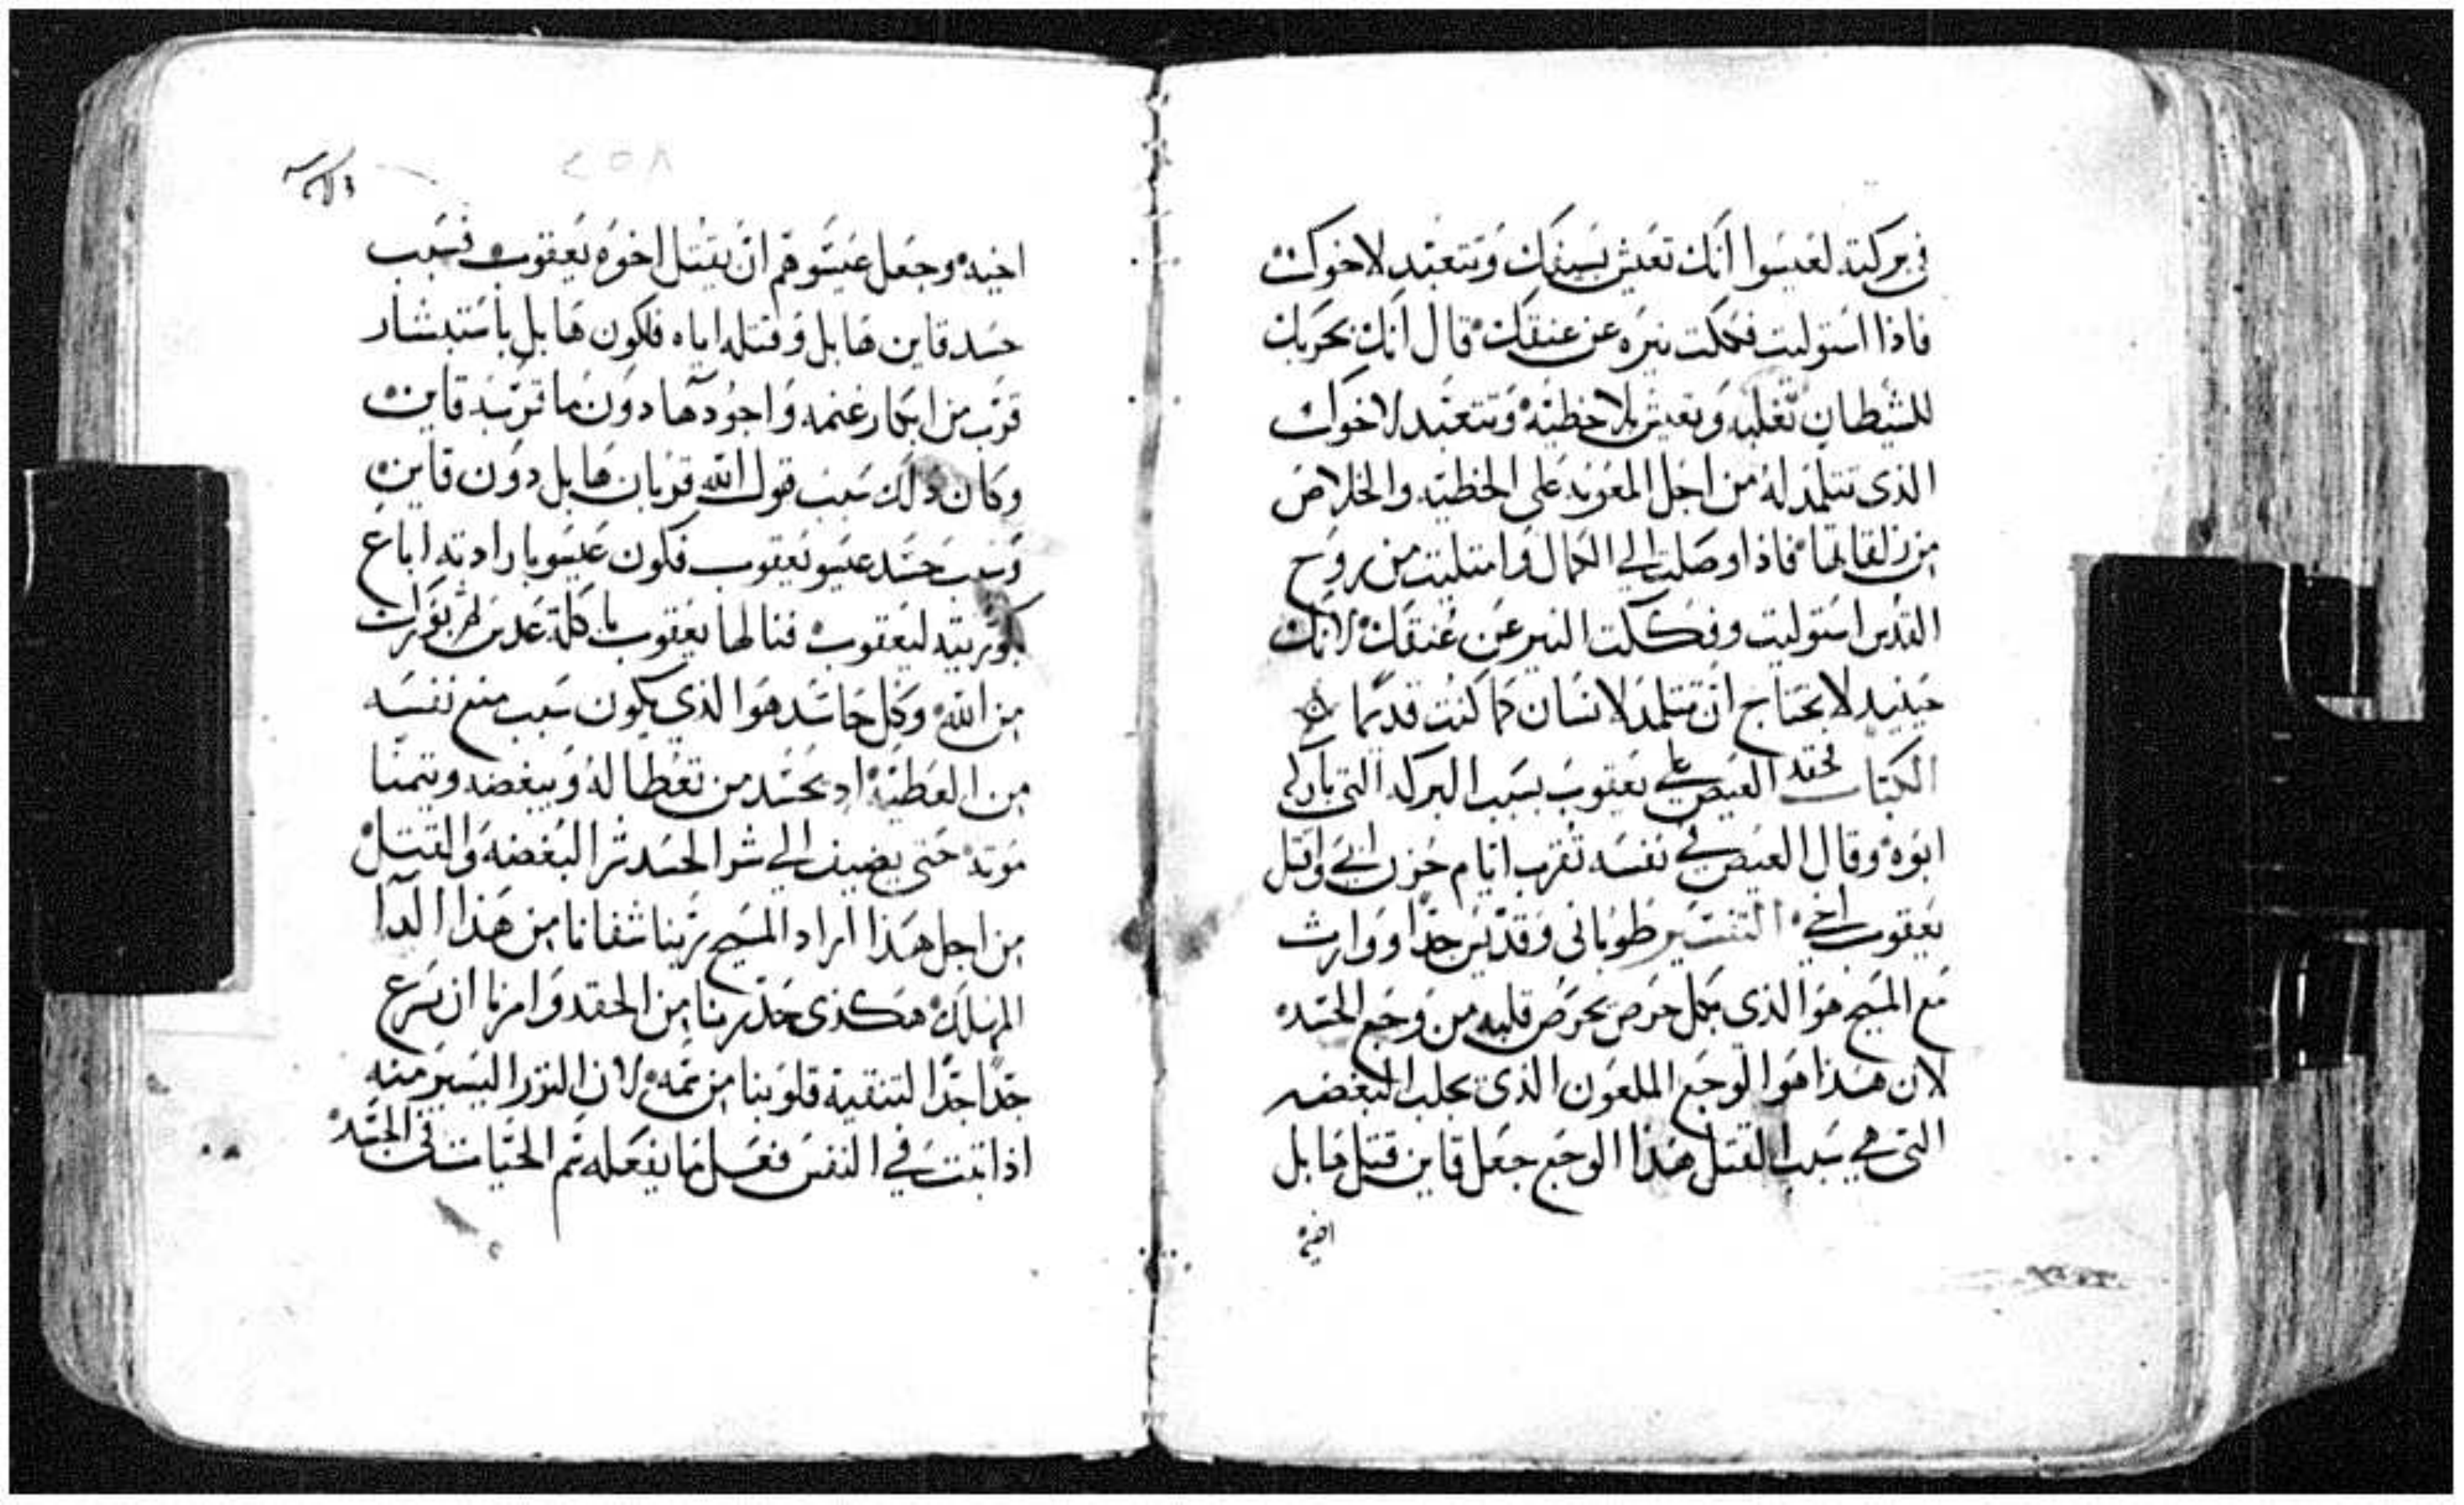 في بركته لعيسوا انك تعيش بسيفك وتتعبد لاخوك
فاذا استوليت فككت نيره عن عنقك قال انك بحربك
للشيطان تغلبه وتعيش بلا خطيه وتتعبد لاخوك
الذي تتلمد له من اجل المعونه على الخطيه والخلاص
من فاذا وصلت الي الكمال وامتليت من روح
القدس استوليت وفككت النير عن عنقك لانك
حينيد لا تحتاج ان تتلمد لانسان كما كنت قديما
الكتاب فحقد العيص علي يعقوب بسبب البركه التي باركه
ابوه وقال العيص في نفسه تقرب ايام حزن ابي واقتل
يعقوب اخي التفسير طوباني وقديس جدا ووارث
مع المسيح هوا الذي بكل حرص يحرص قلبه من وجع الحسد
لان هذا هوا الوجع الملعون الذي يجلب البغضه
التي هي سبب القتل هذا الوجع جعل قاين قتل هابل
اخيه
اخيه وجعل عيسو هم ان يقتل اخوه يعقوب فسبب
حسد قاين هابل وقتله اياه فلكون هابل باستبشار
قرب من ابكار غنمه واجودها دون ما قربه قاين
وكان ذلك سبب قبول الله قربان هابل دون قاين
وسبب حسد عيسو يعقوب فكون عيسو بارادته اباع
بكوريته ليعقوب فنالها يعقوب باكلة عدس
من الله وكل حاسد هوا الذي يكون سبب منع نفسه
من العطيه اد يحسد من تعطا له ويبغضه ويتمنا
موته حتي يضيف الي شر الحسد شر البغضه والقتل
من اجل هذا اراد المسيح ربنا شفانا من هذا الدا
المهلك هكذي حذرنا من الحقد وامرنا ان نسرع
جدا جدا لتنقية قلوبنا من سمه لان النزر اليسير منه
اذا ثبت في النفس فعل ما يفعله سم الحيات في الجسد